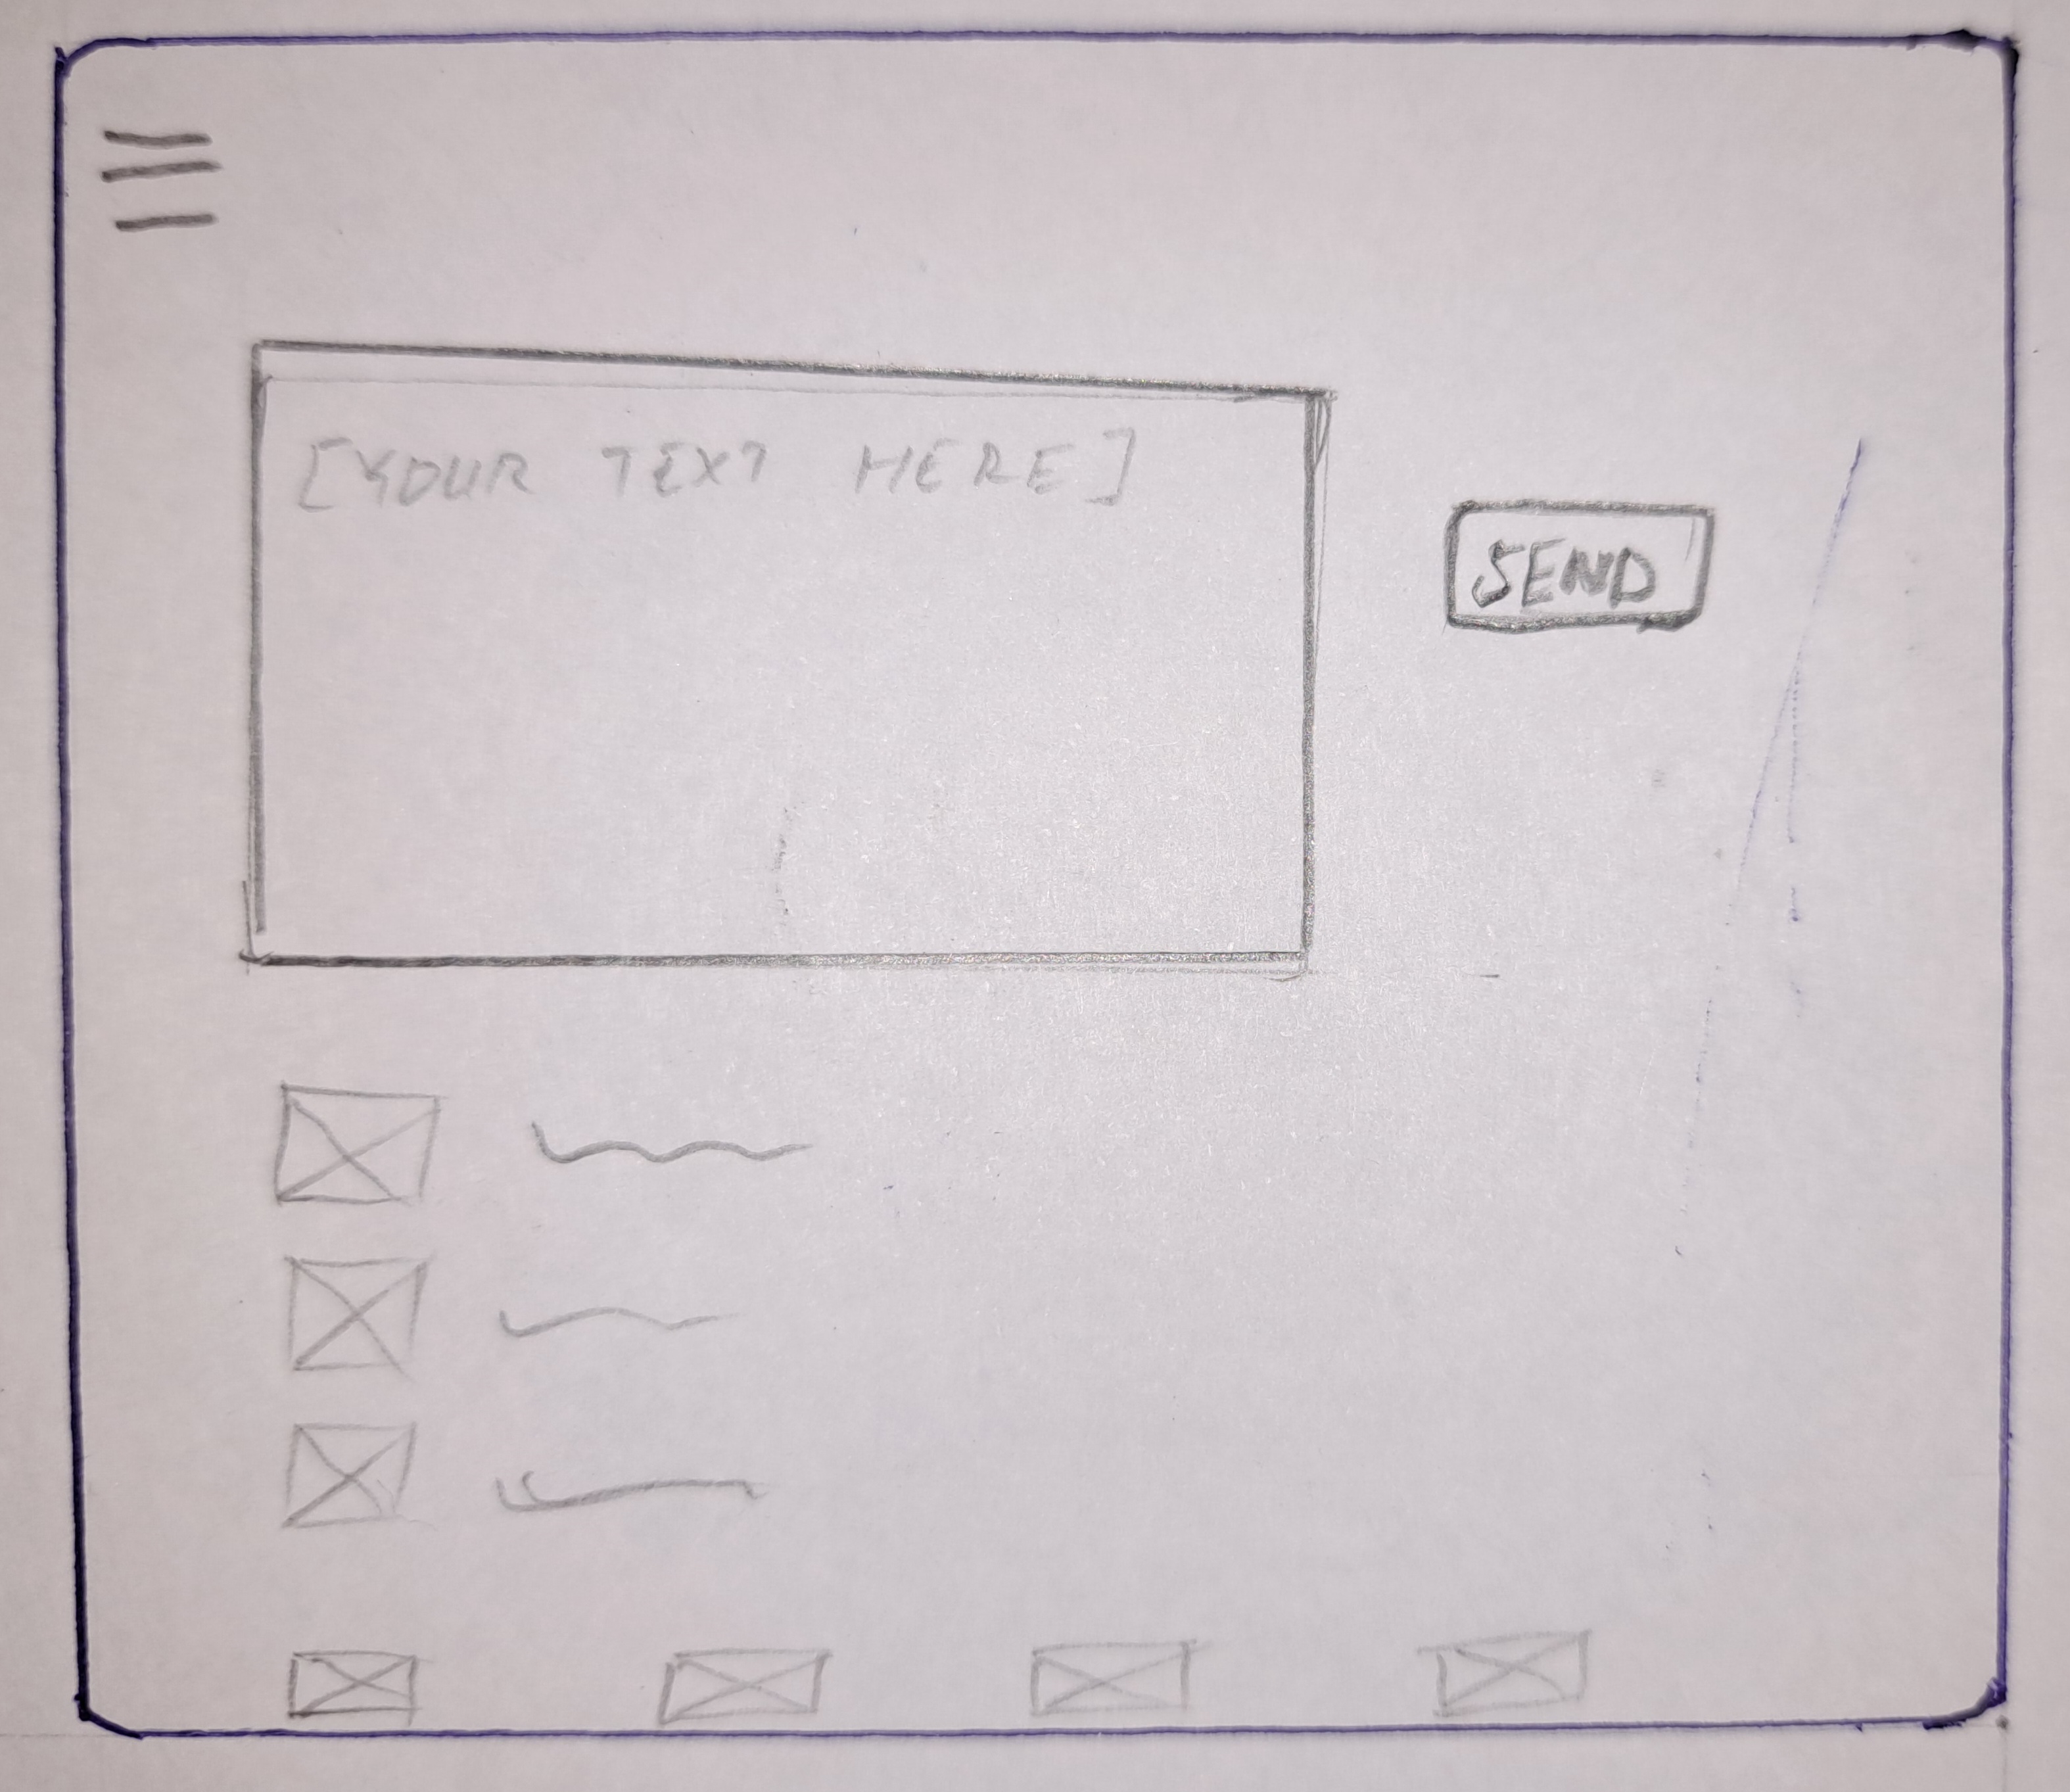 [YOUR TEXT HERE]
SEND